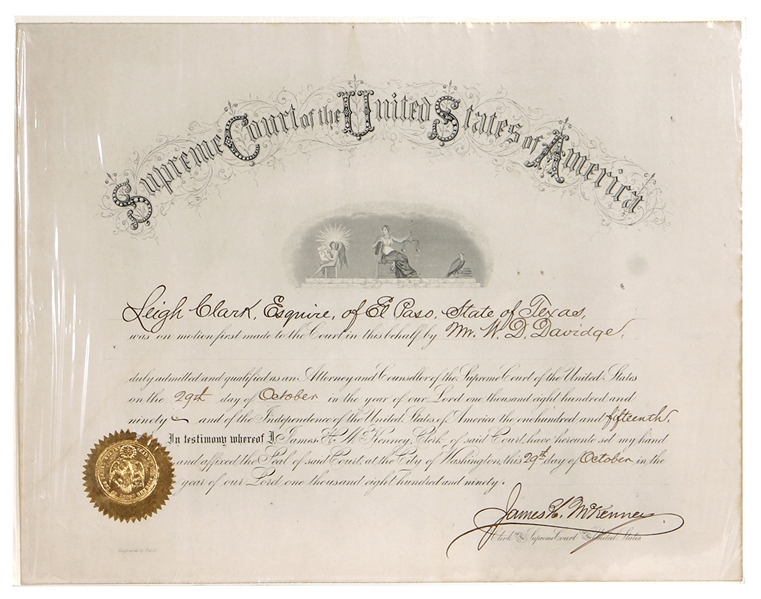 Supreme Court of the United States of America
Leigh Clark, Esquire, of El Paso, State of Texas,
was on motion first made to the Court in this behalf by Mr. W. D. Davidge,
duly admitted and qualified as an Attorney and Counsellor of the Supreme Court of the United States
on the 29th day of October in the year of our Lord one thousand eight hundred and
ninety and of the Independence of the United States of America the one hundred and fifteenth.
In testimony whereof I, James H. McKenney, Clerk, of said Court, have hereunto set my hand
and affixed the Seal of said Court, at the City of Washington, this 29th day of October in the
year of our Lord one thousand eight hundred and ninety.
James H. McKenney
Clerk Supreme Court United States